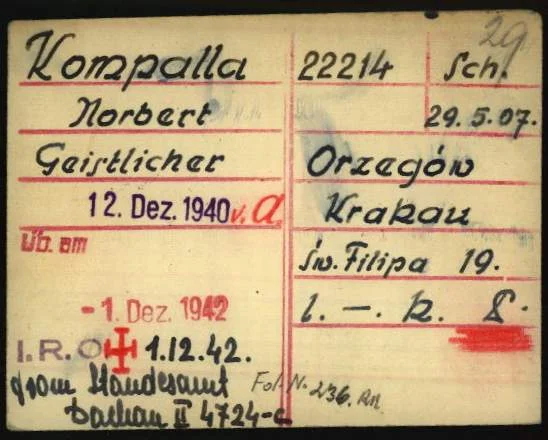 29
Kompalla 22214 Sch.
Norbert 29.5.07.
Geistlicher Orzegów
12. Dez. 1940 v. A. Krakau
Üb. am św. Filipa 19.
-1. Dez. 1942 l. -. k.
I.R.O 1.12.42.
from Standesamt Fol. N. 236.
Dachau II 4724-c